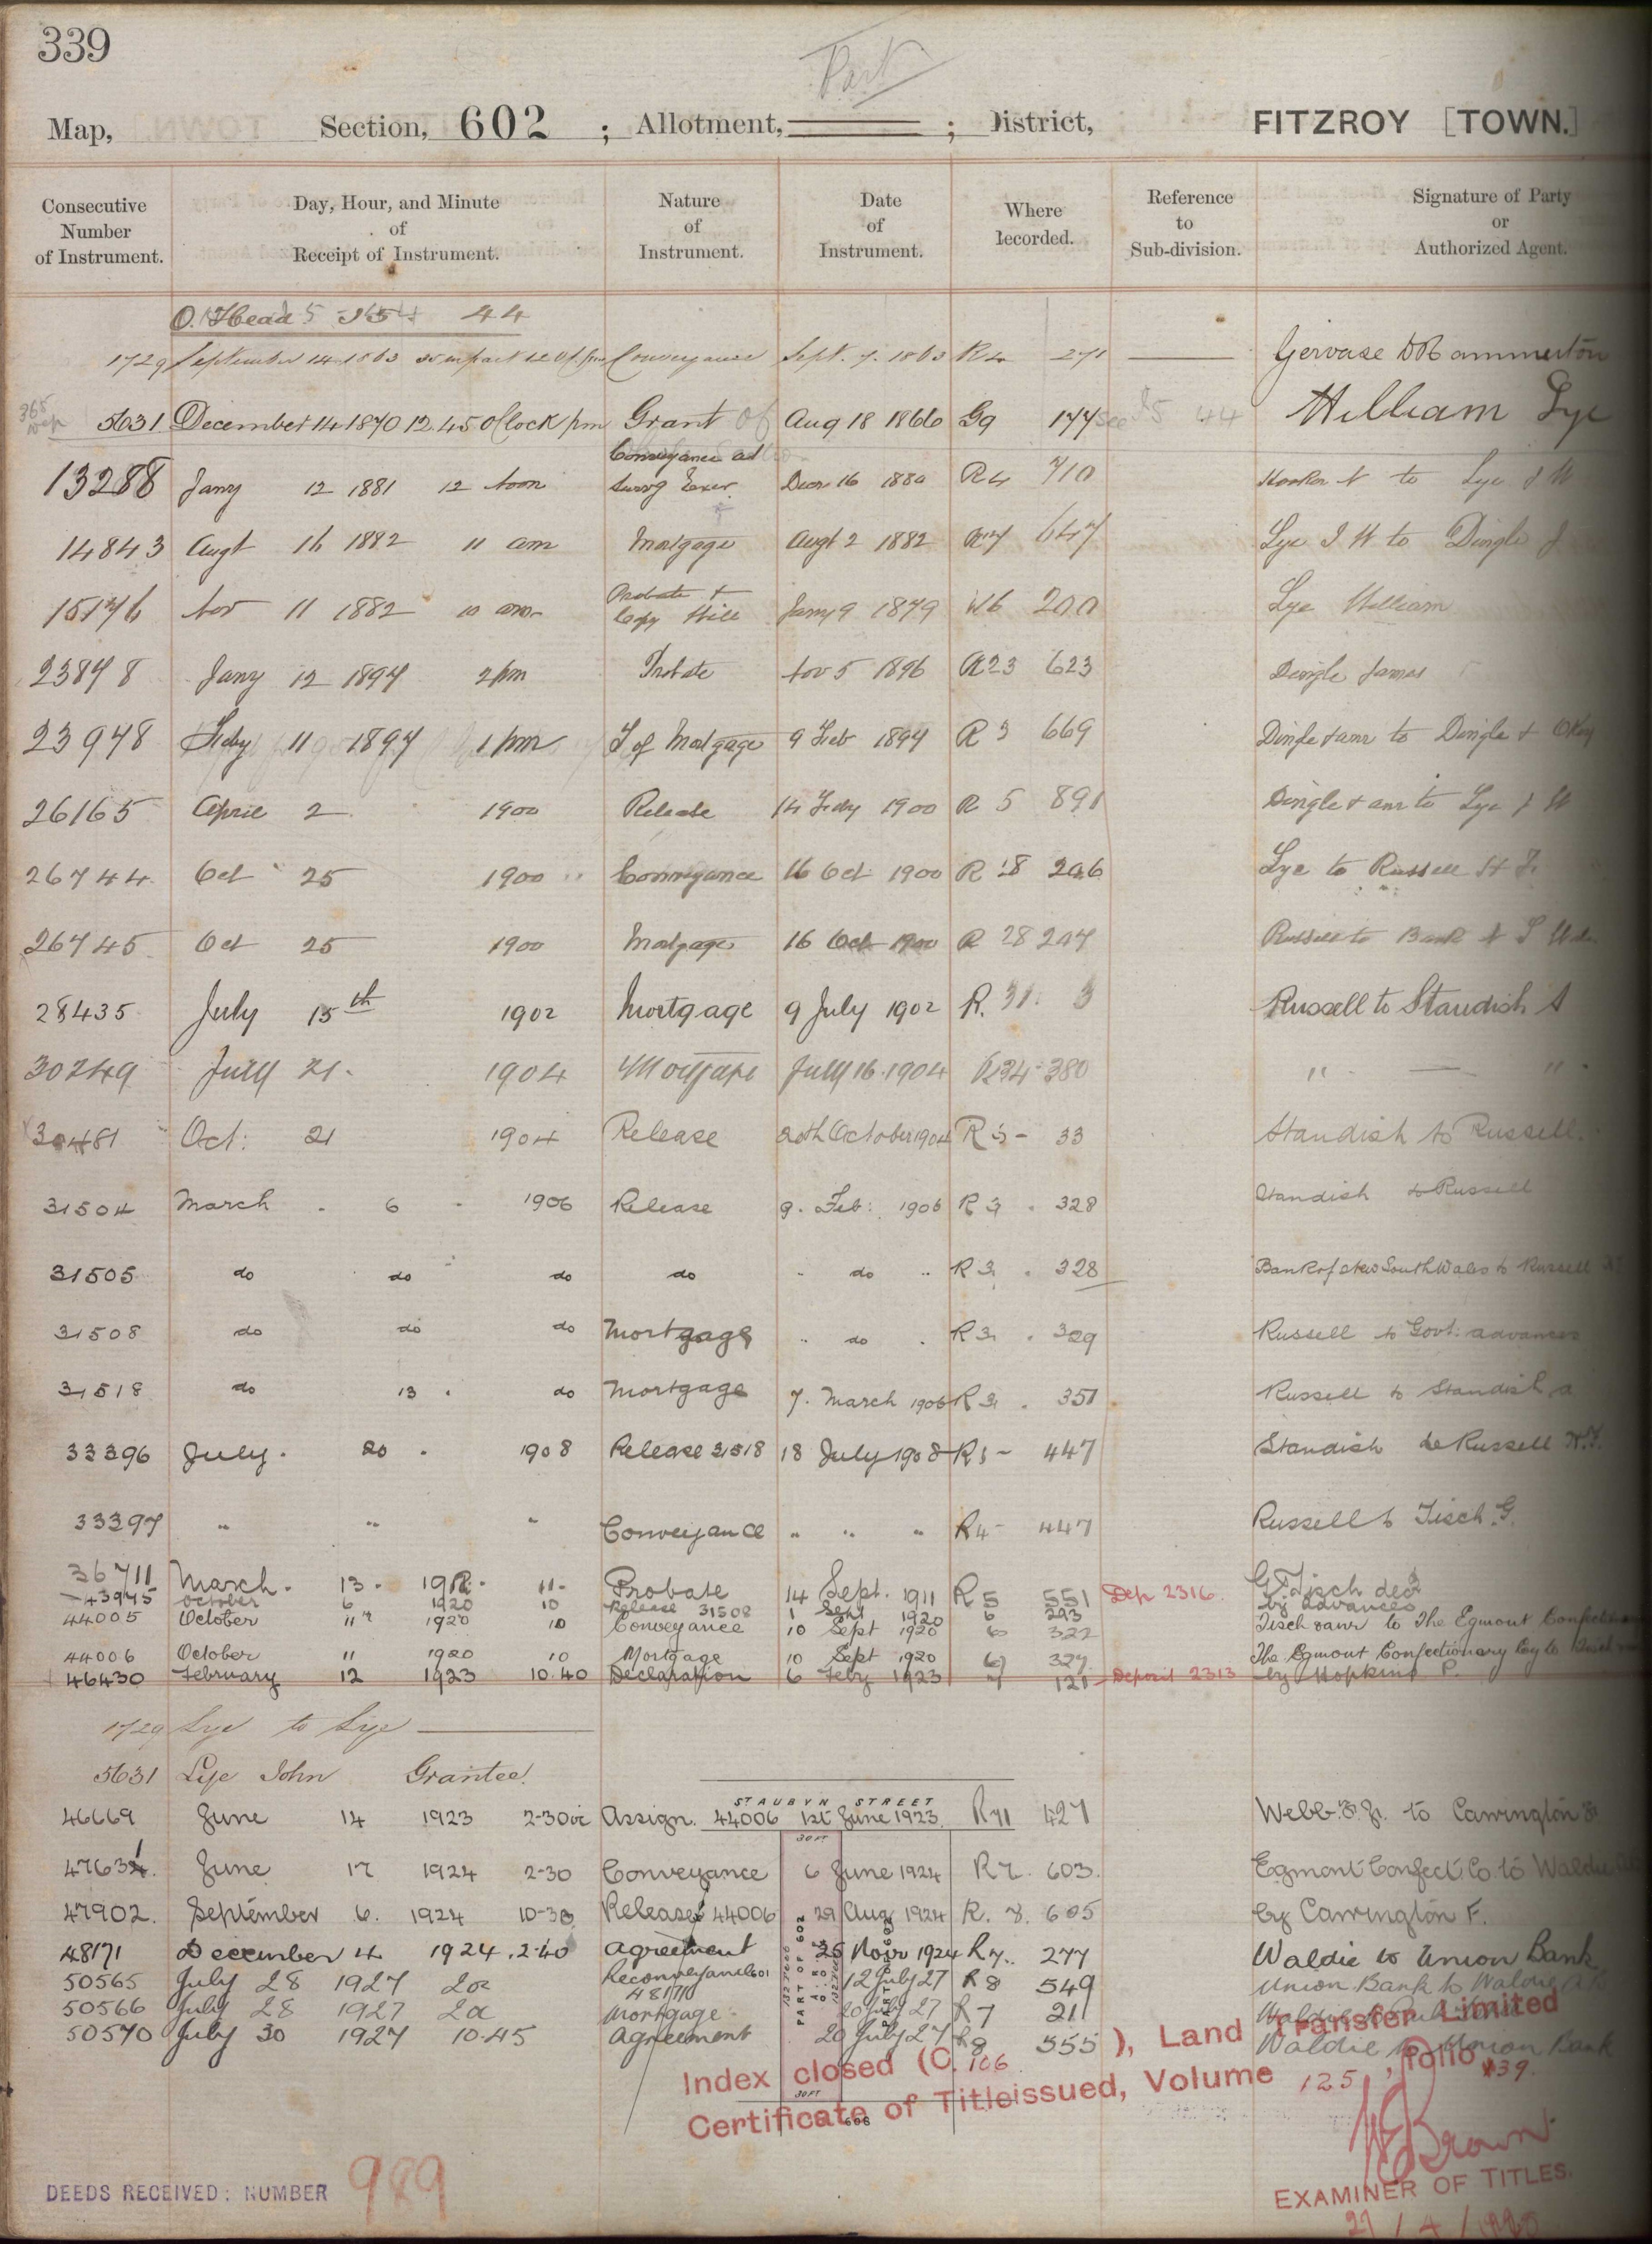 339
Part
Map, Section, 602 ; Allotment, ; District, FITZROY [TOWN.]
Consecutive Number of Instrument. Day, Hour, and Minute of Receipt of Instrument. Nature of Instrument. Date of Instrument. Where Recorded. Reference to Sub-division. Signature of Party or Authorized Agent.
O. Head 44
1729 September 14 1863 Conveyance Sept. 7. 1863 R4 271 Gervase D Hammerton
5631 December 14 1870 12.45 O'Clock pm Grant of Aug 18 1866 G9 177 see 44 William Lye
13288 Jany 12 1881 12 noon Conveyance ad Survg Exer. Decr 16 1880 R4 710 Hooker to Lye J W
14843 Augt 16 1882 11 am Mortgage Augt 2 1882 647 Lye J W to Dingle J
15176 Nov 11 1882 10 am Probate & Copy Will Jany 9 1879 W6 200 Lye William
23878 Jany 12 1897 2 pm Probate Nov 5 1896 R23 623 Dingle James
23948 Feby 11 1897 1 pm T of Mortgage 9 Feb 1897 R 3 669 Dingle & anr to Dingle & OKey
26165 April 2 1900 Release 14 Feby 1900 R 5 891 Dingle & anr to Lye J W
26744 Oct 25 1900 Conveyance 16 Oct 1900 R 28 206 Lye to Russell H T.
26745 Oct 25 1900 Mortgage 16 Oct 1900 R 28 207 Russell to Bank N S Wales
28435 July 15th 1902 Mortgage 9 July 1902 R. 31. 3 Russell to Standish A
30249 July 21. 1904 Mortgage July 16. 1904 R34 380 " — "
30481 Oct: 21 1904 Release 20th October 1904 R 5 - 33 Standish to Russell.
31504 March . 6 - 1906 Release 9. Feb: 1906 R 3 . 328 Standish to Russell
31505 do do do do do R 3 . 328 Bank of New South Wales to Russell
31508 do do do Mortgage do R 3 . 329 Russell to Govt. advances
31518 do 13 . do Mortgage 7. March 1906 R 3 . 351 Russell to Standish a
33396 July . 20 . 1908 Release 31518 18 July 1908 R5 - 447 Standish to Russell H.T.
33397 " " " Conveyance " " " R4 - 447 Russell to Tisch. G.
36711 March . 13 . 1912. 11 - Probate 14 Sept. 1911 R 5 551 Dep 2316. G. Tisch decd
43975 October 6 1920 10 Release 31508 1 Sept 1920 6 293 by advances
44005 October 11 1920 10 Conveyance 10 Sept 1920 6 322 Tisch & anr to The Egmont Confection
44006 October 11 1920 10 Mortgage 10 Sept 1920 6 327 The Egmont Confectionary Coy to Tisch
46430 February 12 1923 10.40 Declaration 6 Feby 1923 7 121 Deposit 2313 by Hopkins P.
1729 Lye to Lye
5631 Lye John Grantee.
ST AUBYN STREET
46669 June 14 1923 2-30 Assign. 44006 1st June 1923 R 71 427 Webb to Carrington
30 FT
47631. June 17 1924 2-30 Conveyance 6 June 1924 R 7. 603. Egmont Confect. Co to Waldie
47902. September 6. 1924 10-30 Release 44006 29 Aug 1924 R. 8. 605 by Carrington F.
48171 December 4 1924. 2.40 agreement 25 Novr 1924 R 7. 277 Waldie to Union Bank
PART OF 602
50565 July 28 1927 2 Reconveyance 48171 12 July 27 R 8 549 Union Bank to Waldie
50566 July 28 1927 2 Mortgage 20 July 27 R 7 211 Waldie
50570 July 30 1927 10.45 agreement 20 July 27 R8 555 Waldie to Union Bank
30 FT
Index closed (C. 106 ), Land Transfer Limited
Certificate of Title issued, Volume 125 , folio 139.
DEEDS RECEIVED: NUMBER 989
Brown
EXAMINER OF TITLES.